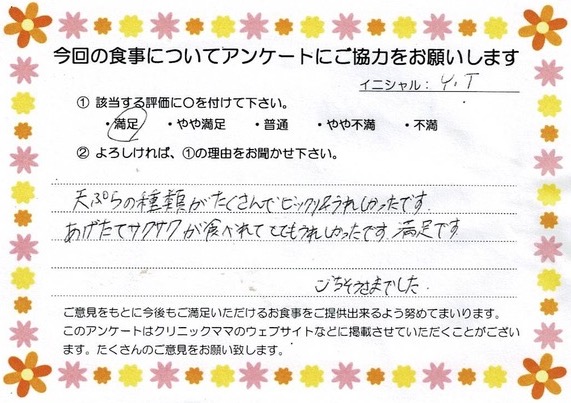 今回の食事についてアンケートにご協力をお願いします
イニシャル： Y.T
① 該当する評価に○を付けて下さい。
・満足 ・やや満足 ・普通 ・やや不満 ・不満
② よろしければ、①の理由をお聞かせ下さい。
天ぷらの種類がたくさんでビックリ&うれしかったです。
あげたてサクサクが食べれてとてもうれしかったです。満足です
ごちそうさまでした。
ご意見をもとに今後もご満足いただけるお食事をご提供出来るよう努めてまいります。
このアンケートはクリニックママのウェブサイトなどに掲載させていただくことがござい
ます。たくさんのご意見をお願い致します。